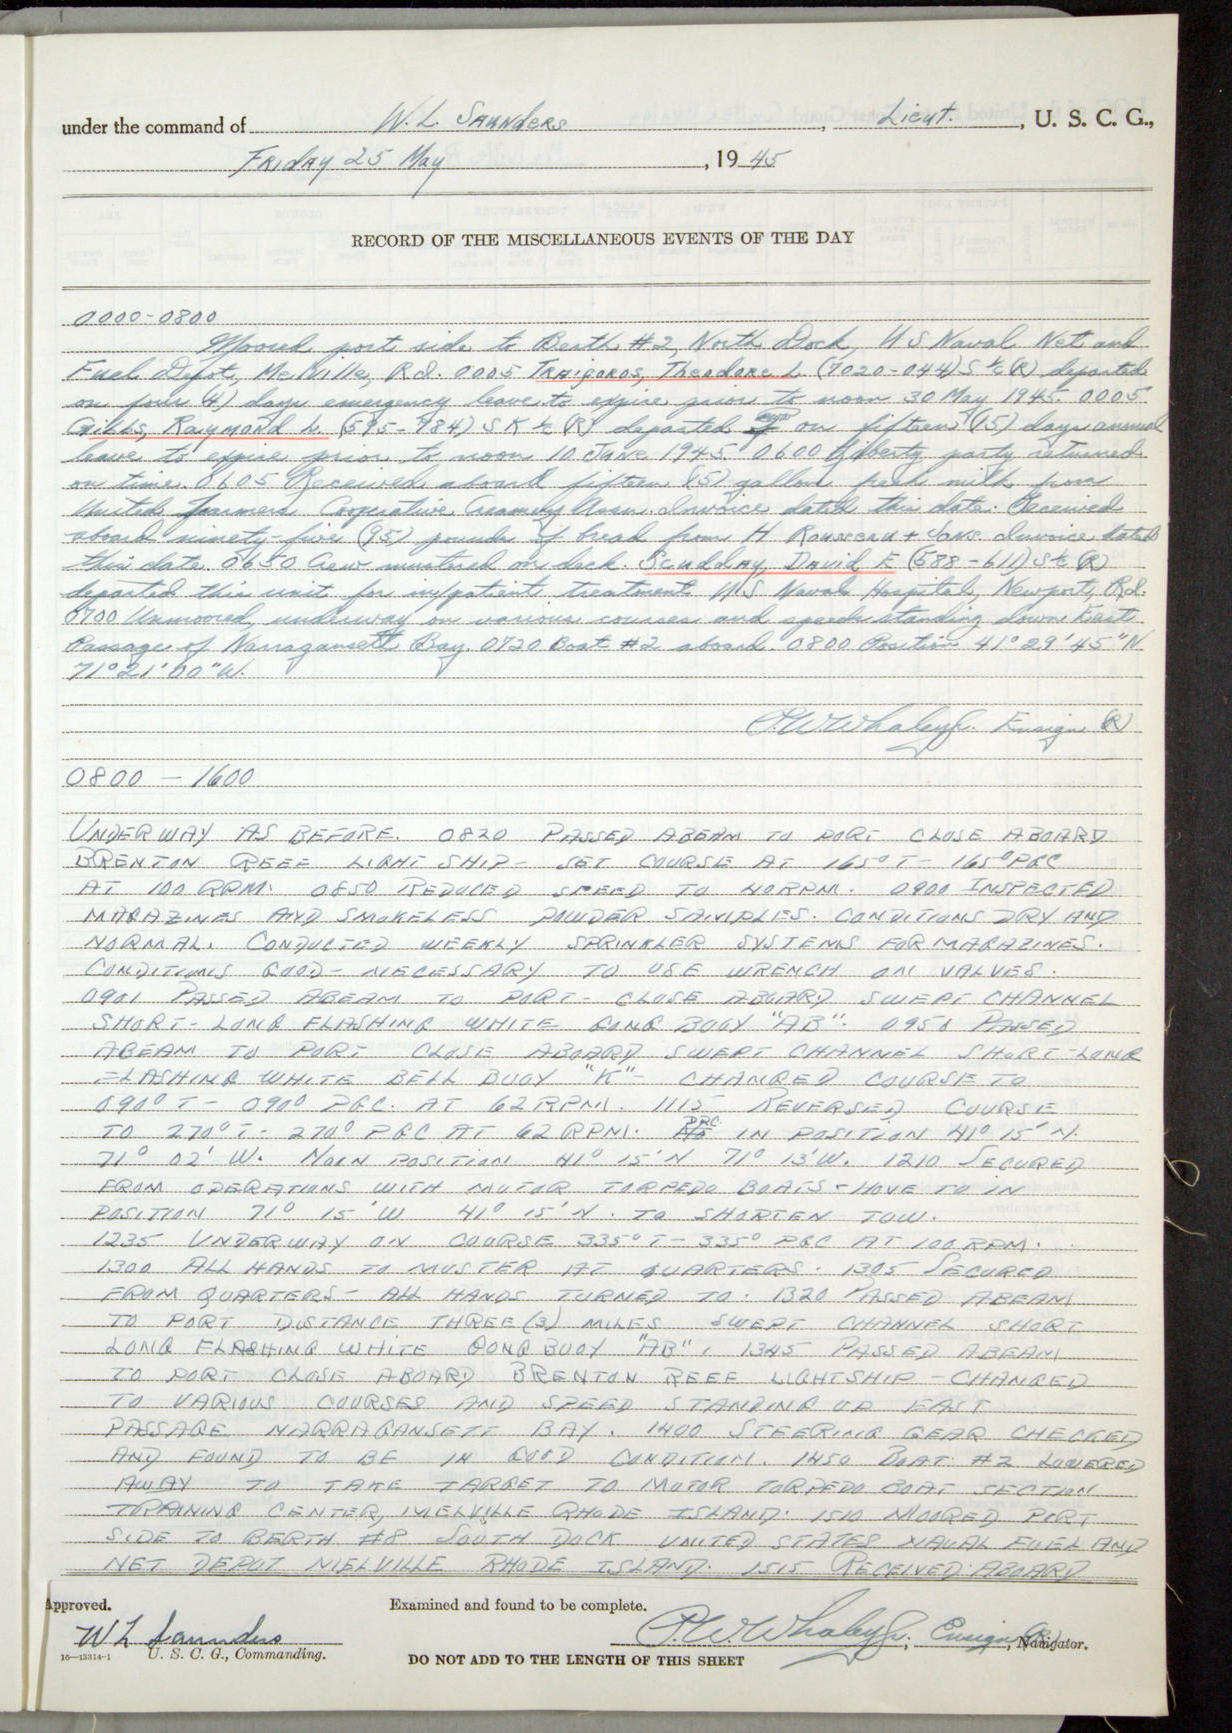 under the command of W. L. Saunders, Lieut., U. S. C. G.,
Friday 25 May, 1945
RECORD OF THE MISCELLANEOUS EVENTS OF THE DAY
0000-0800
Moored port side to Berth #2, North Dock, U S Naval Net and
Fuel Depot, Melville, R.I. 0005 Theodore L (7020-044) S (R) departed
on four (4) days emergency leave to expire prior to noon 30 May 1945. 0005
Gibbs, Raymond L. (595-984) SK (R) departed on fifteen (15) days annual
leave to expire prior to noon 10 June 1945 0600 Liberty party returned
on time. 0605 Received aboard fifteen (15) gallons fresh milk from
United Farmers Cooperative Creamery Assn. Invoice dated this date. Received
aboard ninety-five (95) pounds of bread from H Rousseau + Sons. Invoice dated
this date. 0650 Crew mustered on deck. Scudday, David E (588-611) S (R)
departed this unit for in/patient treatment U S Naval Hospital, Newport, R.I.
0700 Unmoored, underway on various courses and speeds standing down East
Passage of Narragansett Bay. 0720 Boat #2 aboard. 0800 Position 41° 29' 45" N
71° 21' 00" W.
P.W. Whaley Jr. Ensign (R)
0800 - 1600
UNDERWAY AS BEFORE. 0820 PASSED ABEAM TO PORT CLOSE ABOARD
BRENTON REEF LIGHT SHIP - SET COURSE AT 165° T - 165° PGC
AT 100 RPM. 0850 REDUCED SPEED TO 40 RPM. 0900 INSPECTED
MAGAZINES AND SMOKELESS POWDER SAMPLES. CONDITIONS DRY AND
NORMAL. CONDUCTED WEEKLY SPRINKLER SYSTEMS FOR MAGAZINES.
CONDITIONS GOOD - NECESSARY TO USE WRENCH ON VALVES.
0901 PASSED ABEAM TO PORT - CLOSE ABOARD SWEPT CHANNEL
SHORT - LONG FLASHING WHITE GONG BUOY "AB". 0950 PASSED
ABEAM TO PORT CLOSE ABOARD SWEPT CHANNEL SHORT - LONG
FLASHING WHITE BELL BUOY "K" - CHANGED COURSE TO
090° T - 090° PGC. AT 62 RPM. 1115 REVERSED COURSE
TO 270° T - 270° PGC AT 62 RPM. IN POSITION 41° 15' N.
71° 02' W. NOON POSITION 41° 15' N 71° 13' W. 1210 SECURED
FROM OPERATIONS WITH MOTOR TORPEDO BOATS - HOVE TO IN
POSITION 71° 15' W 41° 15' N. TO SHORTEN TOW.
1235 UNDERWAY ON COURSE 335° T - 335° PGC AT 100 RPM.
1300 ALL HANDS TO MUSTER AT QUARTERS. 1305 SECURED
FROM QUARTERS - ALL HANDS TURNED TO. 1320 PASSED ABEAM
TO PORT DISTANCE THREE (3) MILES SWEPT CHANNEL SHORT
LONG FLASHING WHITE GONG BUOY "AB". 1345 PASSED ABEAM
TO PORT CLOSE ABOARD BRENTON REEF LIGHTSHIP - CHANGED
TO VARIOUS COURSES AND SPEED STANDING UP EAST
PASSAGE NARRAGANSETT BAY. 1400 STEERING GEAR CHECKED
AND FOUND TO BE IN GOOD CONDITION. 1450 BOAT #2 LOWERED
AWAY TO TAKE TARGET TO MOTOR TORPEDO BOAT SECTION
TRAINING CENTER, MELVILLE RHODE ISLAND. 1510 MOORED PORT
SIDE TO BERTH #8 SOUTH DOCK UNITED STATES NAVAL FUEL AND
NET DEPOT MELVILLE RHODE ISLAND. 1515 RECEIVED ABOARD
Approved. Examined and found to be complete.
W L Saunders P.W. Whaley Jr., Ensign (R), Navigator.
16—13314-1 U. S. C. G., Commanding. DO NOT ADD TO THE LENGTH OF THIS SHEET